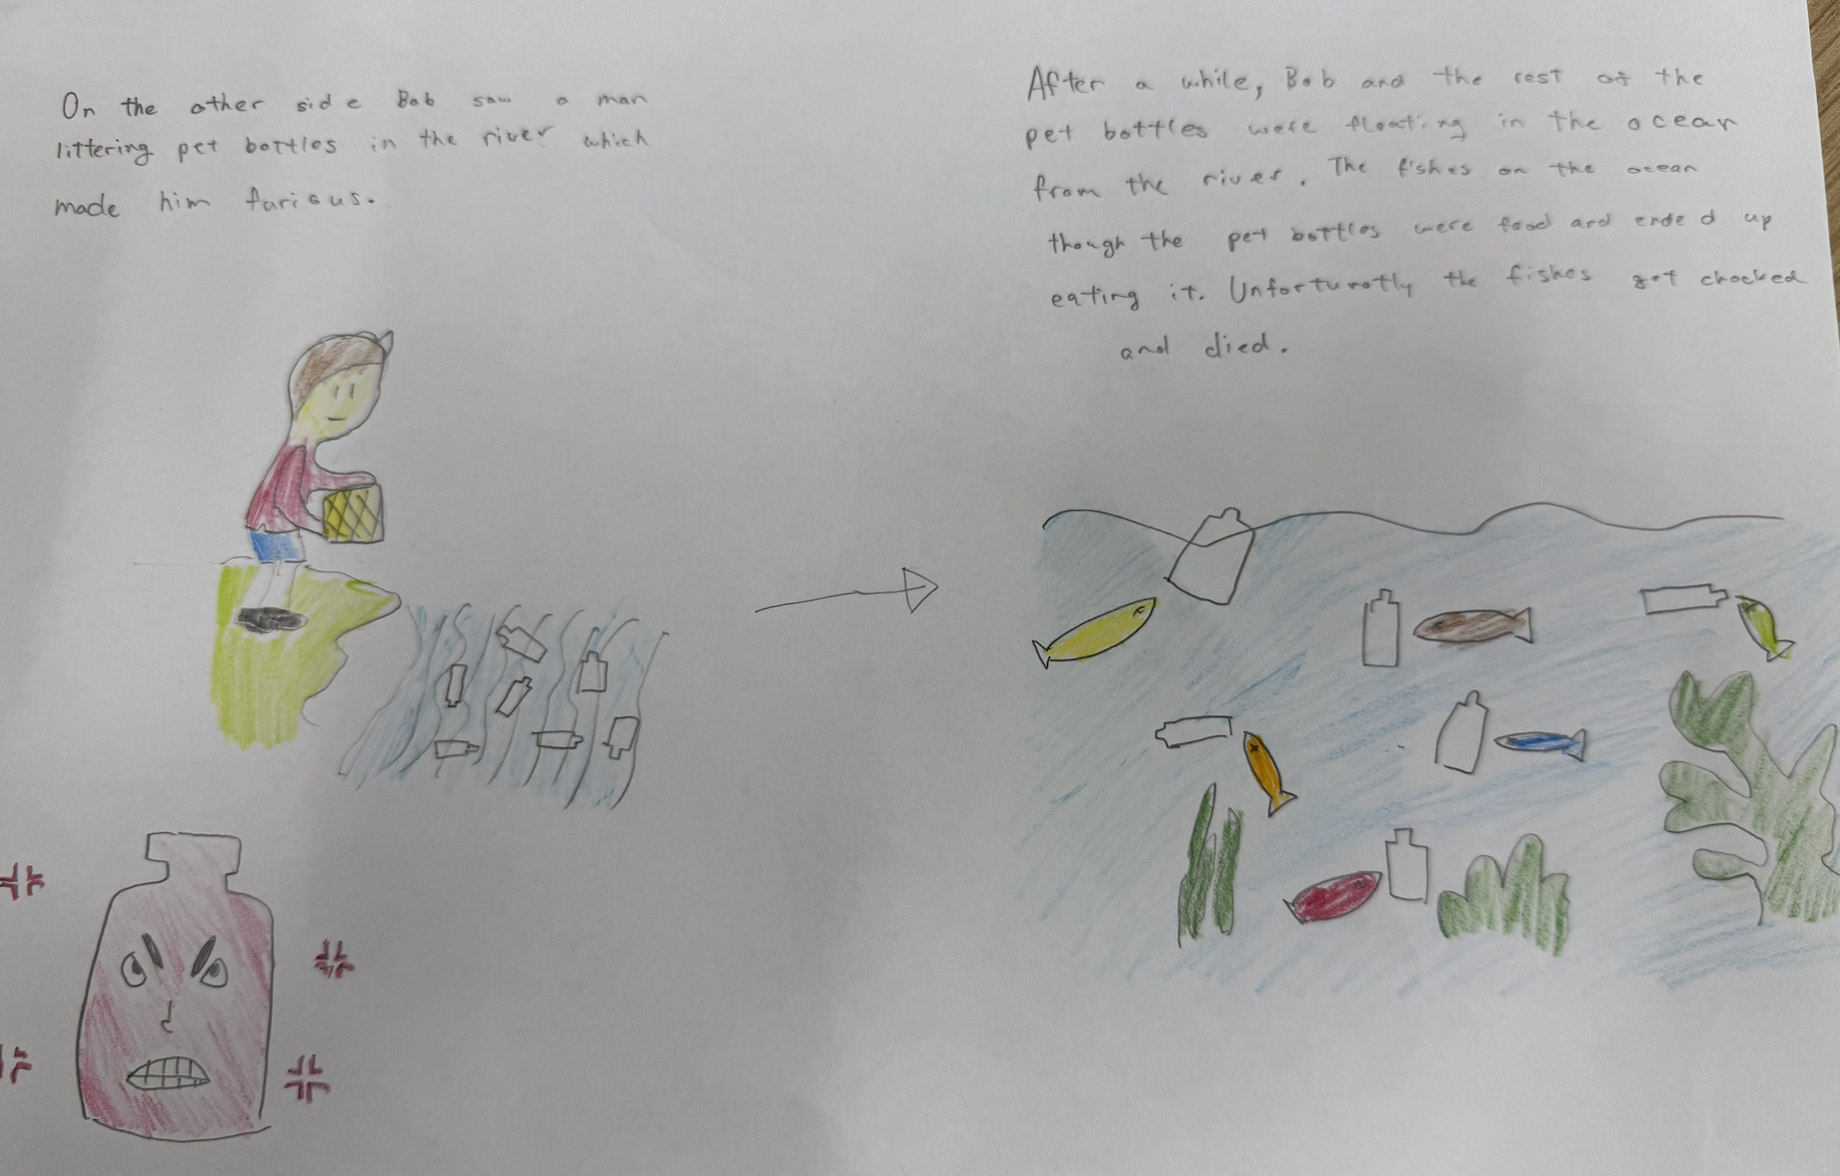 On the other side Bob saw a man
littering pet bottles in the river which
made him furious.
After a while, Bob and the rest of the
pet bottles were floating in the ocean
from the river. The fishes on the ocean
though the pet bottles were food and ended up
eating it. Unforturatly the fishes got chocked
and died.